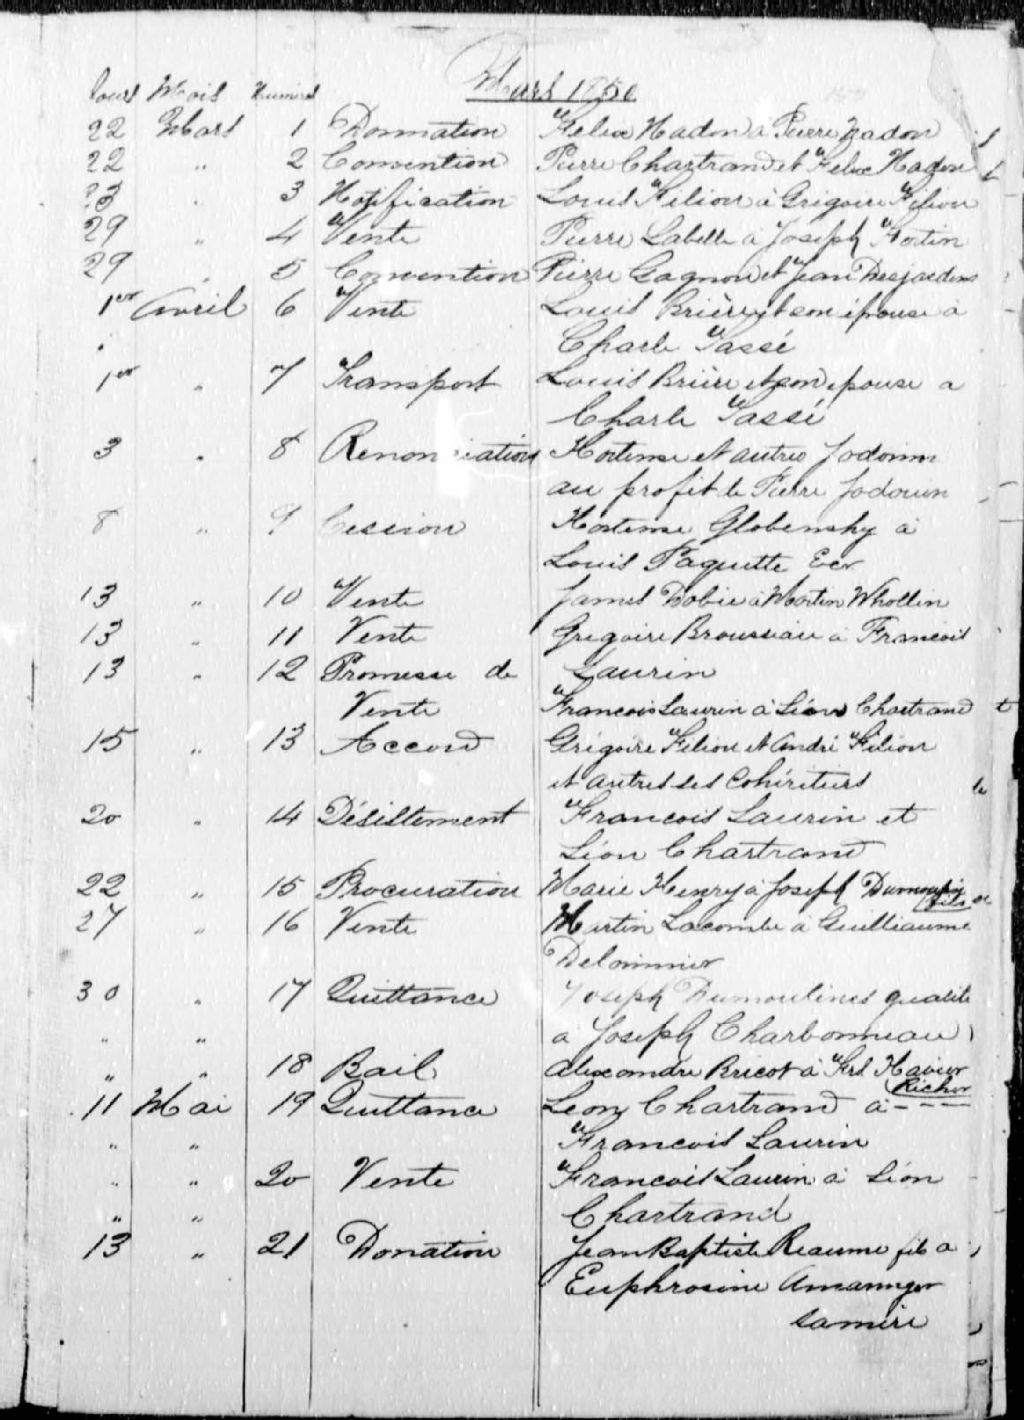 Mars 1850
Jours Mois Numéros
22 Mars 1 Donnation Felix Nadon à Pierre Nadon
22 " 2 Convention Pierre Chartrand et Felix Nadon
23 " 3 Notification Louis Filion à Grigoire Filion
29 " 4 Vente Pierre Labelle à Joseph Fortin
29 " 5 Convention Pierre Gagnon et Jean Desjardins
1er Avril 6 Vente Louis Brière et son épouse à
Charle Tassé
1er " 7 Transport Louis Brière et son epouse a
Charle Tassé
3 " 8 Renonciation Hortense et autres Jodouin
au profit de Pierre Jodouin
8 " 9 Cession Hortense Globensky à
Louis Paquette Ecr
13 " 10 Vente James Dobie à Martin Whollin
13 " 11 Vente Gregoire Brousseau à Francois
13 " 12 Promesse de Laurin
Vente Francois Laurin à Léon Chartrand
15 " 13 Accord Grégoire Filion et André Filion
et autres ses Cohéritiers
20 " 14 Désistement Francois Laurin et
Léon Chartrand
22 " 15 Procuration Marie Henry à Joseph Dumoulin
fils
27 " 16 Vente Martin Lacombe à Guilliaume
Delorimier
30 " 17 Quittance Joseph Dumoulin es qualité
" " à Joseph Charbonneau
" " 18 Bail Alexandre Bricot à Frs Xavier
Richer
11 Mai 19 Quittance Leon Chartrand à - - -
" " Francois Laurin
" " 20 Vente Francois Laurin à Léon
" " Chartrand
13 " 21 Donation Jean Baptiste Reaume fils a
Euphrosine
sa mère